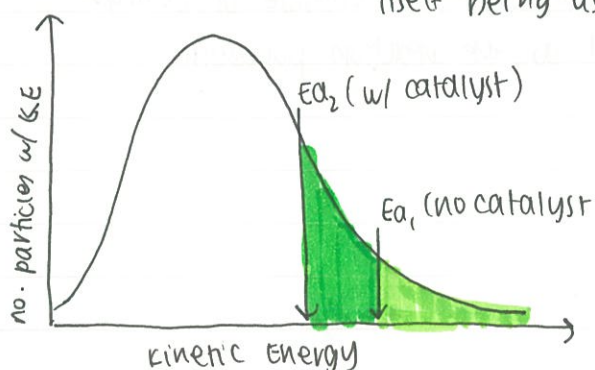 itself being us
no. particles w/ K.E
Ea₂ (w/ catalyst)
Ea₁ (no catalyst
Kinetic Energy